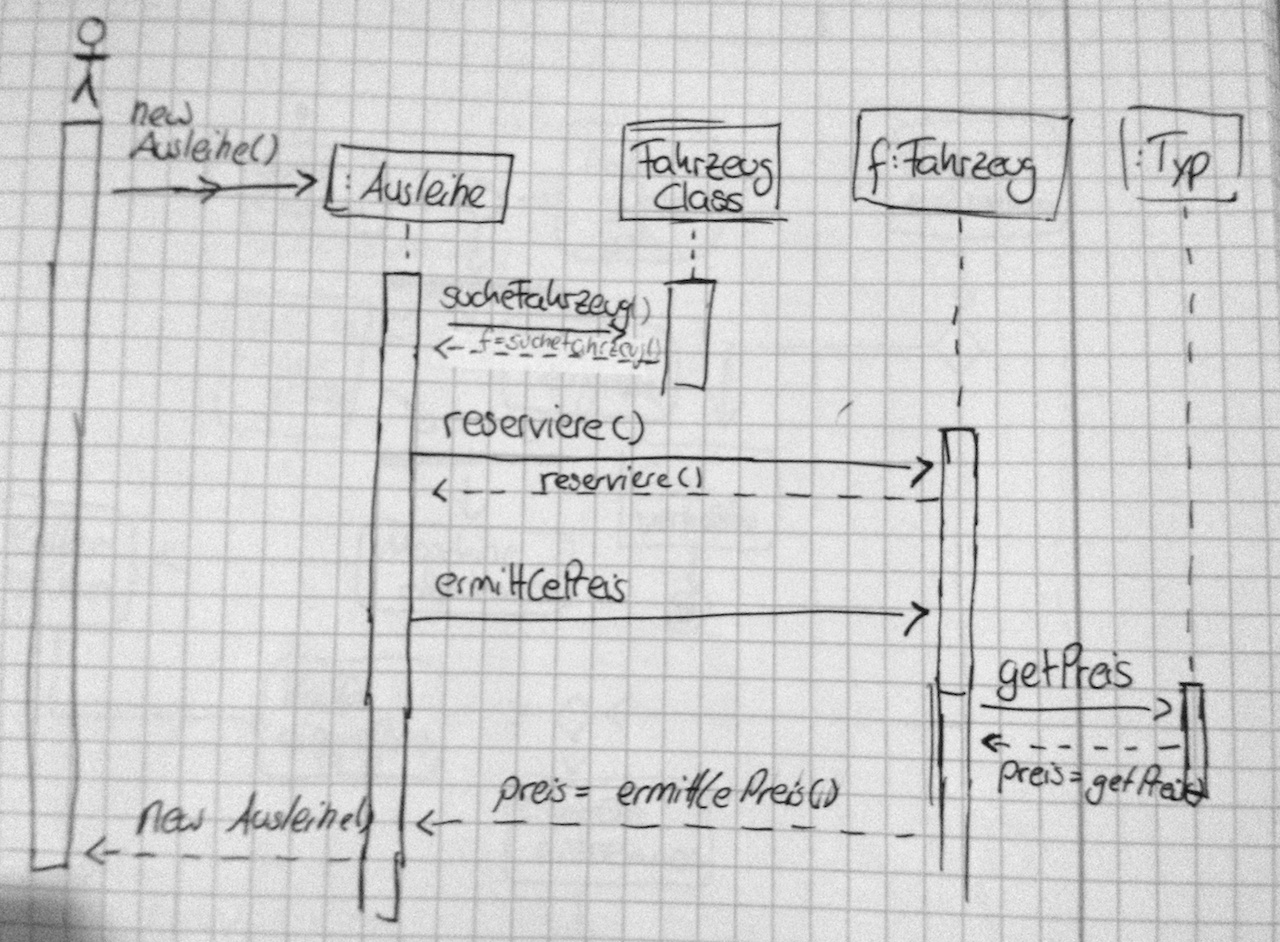 new
Ausleihe()
:Ausleihe
Fahrzeug
Class
f:Fahrzeug
:Typ
sucheFahrzeug()
f=suchefahrzeug()
reserviere()
reserviere()
ermittlePreis
getPreis
preis=getPreis()
preis= ermittlePreis()
new Ausleihe()